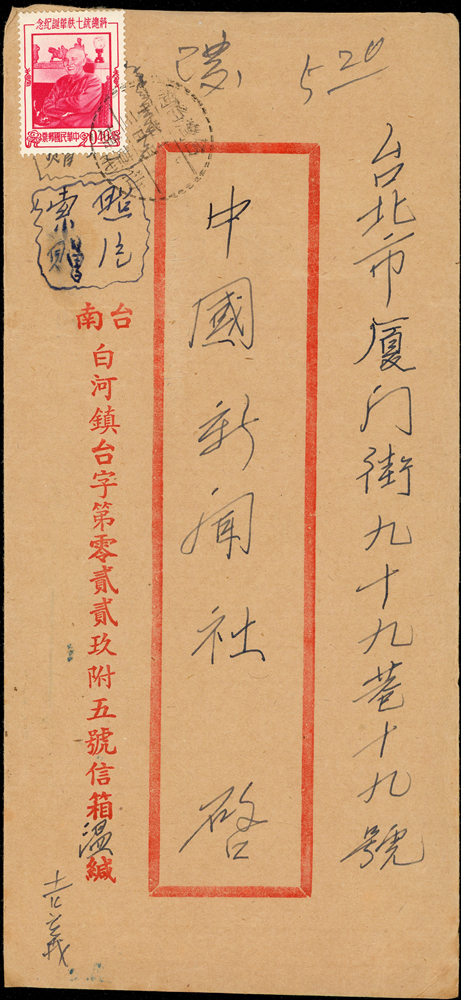 台北市厦门街九十九巷十九號
中國新闻社 啓
5 20
蔣總統七秩華誕紀念
中華民國郵票
0.40
照片
索贈
台南
白河鎮台字第零貳貳玖附五號信箱溫緘